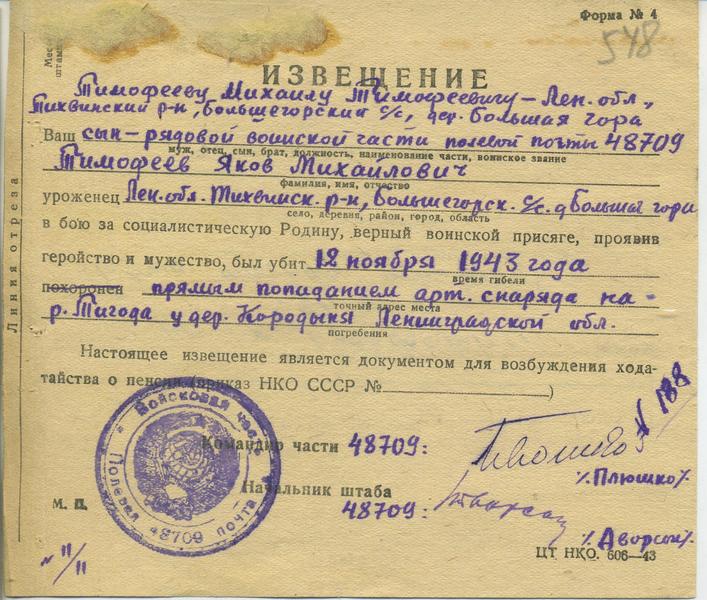 Форма № 4
548
Линия отреза
ИЗВЕЩЕНИЕ
Тимофееву Михаилу Тимофеевичу – Лен. обл.,
Тихвинский р-н, Большегорский с/с, дер. Большая гора
Ваш сын – рядовой воинской части полевой почты 48709
муж, отец, сын, брат, должность, наименование части, воинское звание
Тимофеев Яков Михайлович
фамилия, имя, отчество
уроженец Лен. обл. Тихвинск. р-н, Большегорск. с/с. д Большая гора
село, деревня, район, город, область
в бою за социалистическую Родину, верный воинской присяге, проявив
геройство и мужество, был убит 12 ноября 1943 года
время гибели
похоронен прямым попаданием арт. снаряда на –
точный адрес места
р. Тигода у дер. Кородыня Ленинградской обл.
погребения
Настоящее извещение является документом для возбуждения хода-
тайства о пенсии (приказ НКО СССР № )
Командир части 48709:
№ 188
/. Плюшко /.
Начальник штаба
48709:
М. П.
Войсковая часть
Полевая почта
48709
/. Аворсы /.
11/11
ЦТ НКО. 606—43